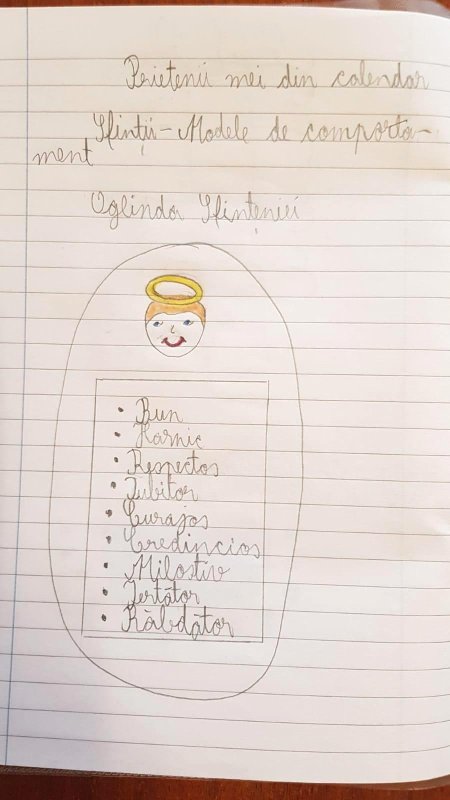 Prietenii mei din calendar
Sfinții-Modele de comporta-
ment
Oglinda Sfințeniei
• Bun
• Harnic
• Respectos
• Iubitor
• Curajos
• Credincios
• Milostiv
• Iertător
• Răbdător